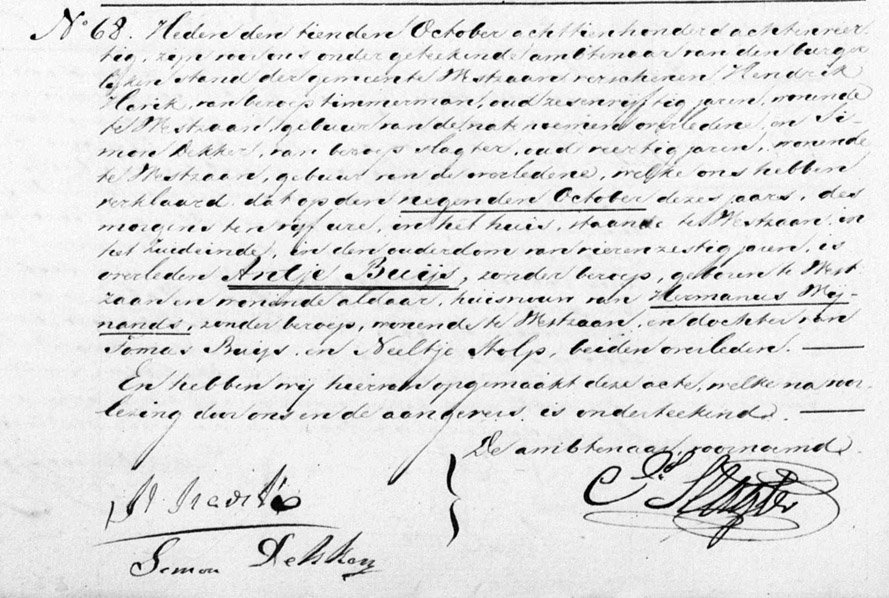 No. 68. Heden den tienden October achttienhonderd achtenveer-
tig, zijn voor ons ondergeteekende ambtenaar van den burger
lijken stand der gemeente Westzaan verschenen Hendrik
van beroep timmerman, oud zesenvijftig jaren, wonende
te Westzaan, gebuur van de nate noemene overledene, en Si-
mon Dekker, van beroep slagter, oud veertig jaren, wonende
te Westzaan, gebuur van de overledene, welke ons hebben
verklaard, dat op den negenden October dezes jaars, des
morgens ten vijf ure, in het huis, staande te Westzaan in
het Zuideinde, in den ouderdom van vierenzestig jaren, is
overleden Antje Buijs, zonder beroep, geboren te West-
zaan en wonende aldaar, huisvrouw van Hermanus Mij-
nands, zonder beroep, wonende te Westzaan, en dochter van
Tomas Buijs, en Neeltje Stolp, beiden overleden.
En hebben wij hiervan opgemaakt deze acte, welke na voor-
lezing door ons en de aangevers is onderteekend.
De ambtenaar voornoemd
Slagter
Semon Dekker